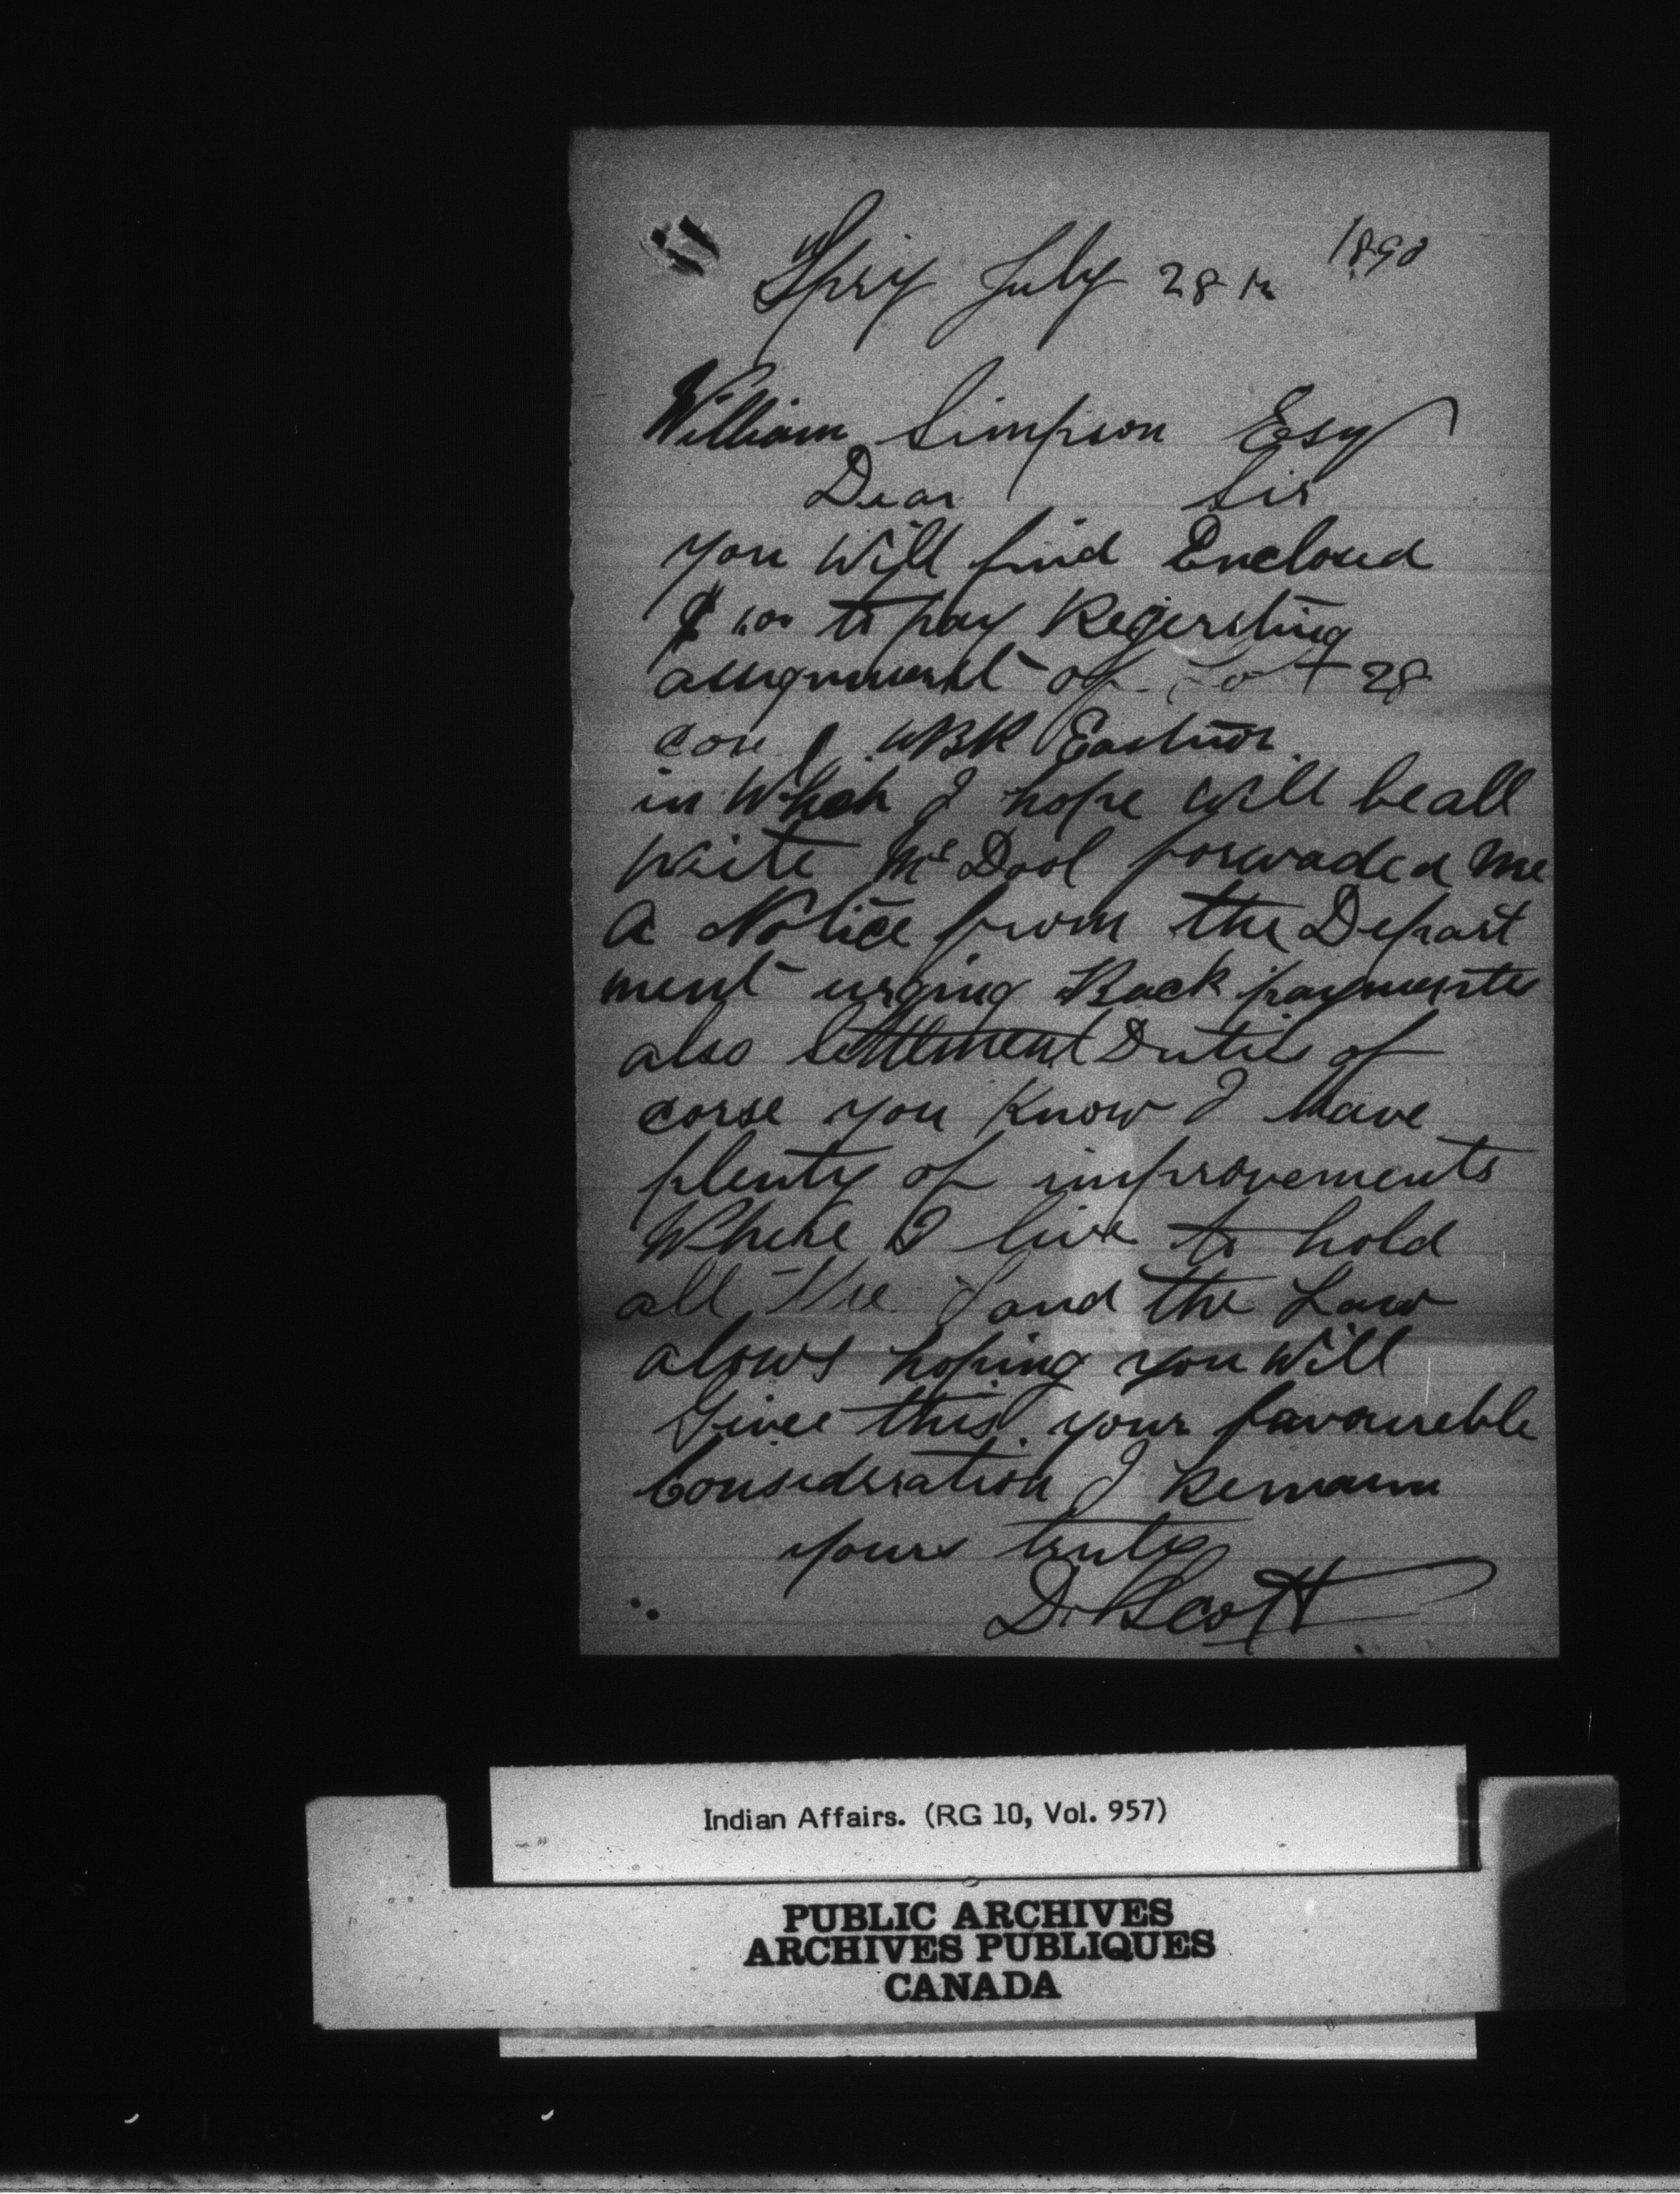 Spry July 28th 1890
William Simpson Esq
Dear Sir
you Will find Encloud
$ 1.00 to pay Regersting
assignment of Lot 28
con 1 WBR Eastnor
in Which I hope will be all
write Mc Dool forwaded me
A Notice from the Depart
ment urging Back payments
also settlement Duties of
corse you Know I have
plenty of improvements
Where I live to hold
all the Land the Law
alows hoping you Will
Givee this your favoureble
Consideration I Remain
yours truly
D. Scott
Indian Affairs. (RG 10, Vol. 957)
PUBLIC ARCHIVES
ARCHIVES PUBLIQUES
CANADA